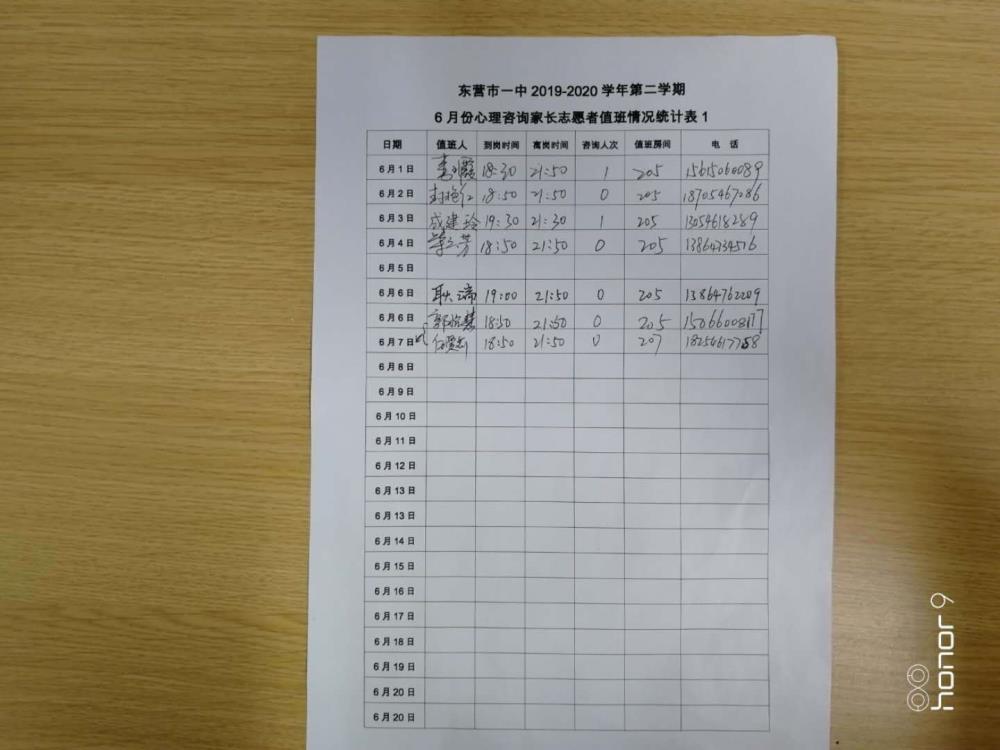 东营市一中 2019-2020 学年第二学期
6 月份心理咨询家长志愿者值班情况统计表 1
日期 值班人 到岗时间 离岗时间 咨询人次 值班房间 电 话
6 月 1 日 18:30 21:50 1 205 15615060089
6 月 2 日 18:50 21:50 0 205 18705467086
6 月 3 日 成建玲 19:30 21:30 1 205 13054618289
6 月 4 日 18:50 21:50 0 205
6 月 5 日
6 月 6 日 耿 19:00 21:50 0 205 13864762209
6 月 6 日 郭 18:50 21:50 0 205
6 月 7 日 18:50 21:50 0 207
6 月 8 日
6 月 9 日
6 月 10 日
6 月 11 日
6 月 12 日
6 月 13 日
6 月 13 日
6 月 14 日
6 月 15 日
6 月 16 日
6 月 17 日
6 月 18 日
6 月 19 日
6 月 20 日
6 月 20 日
honor 9